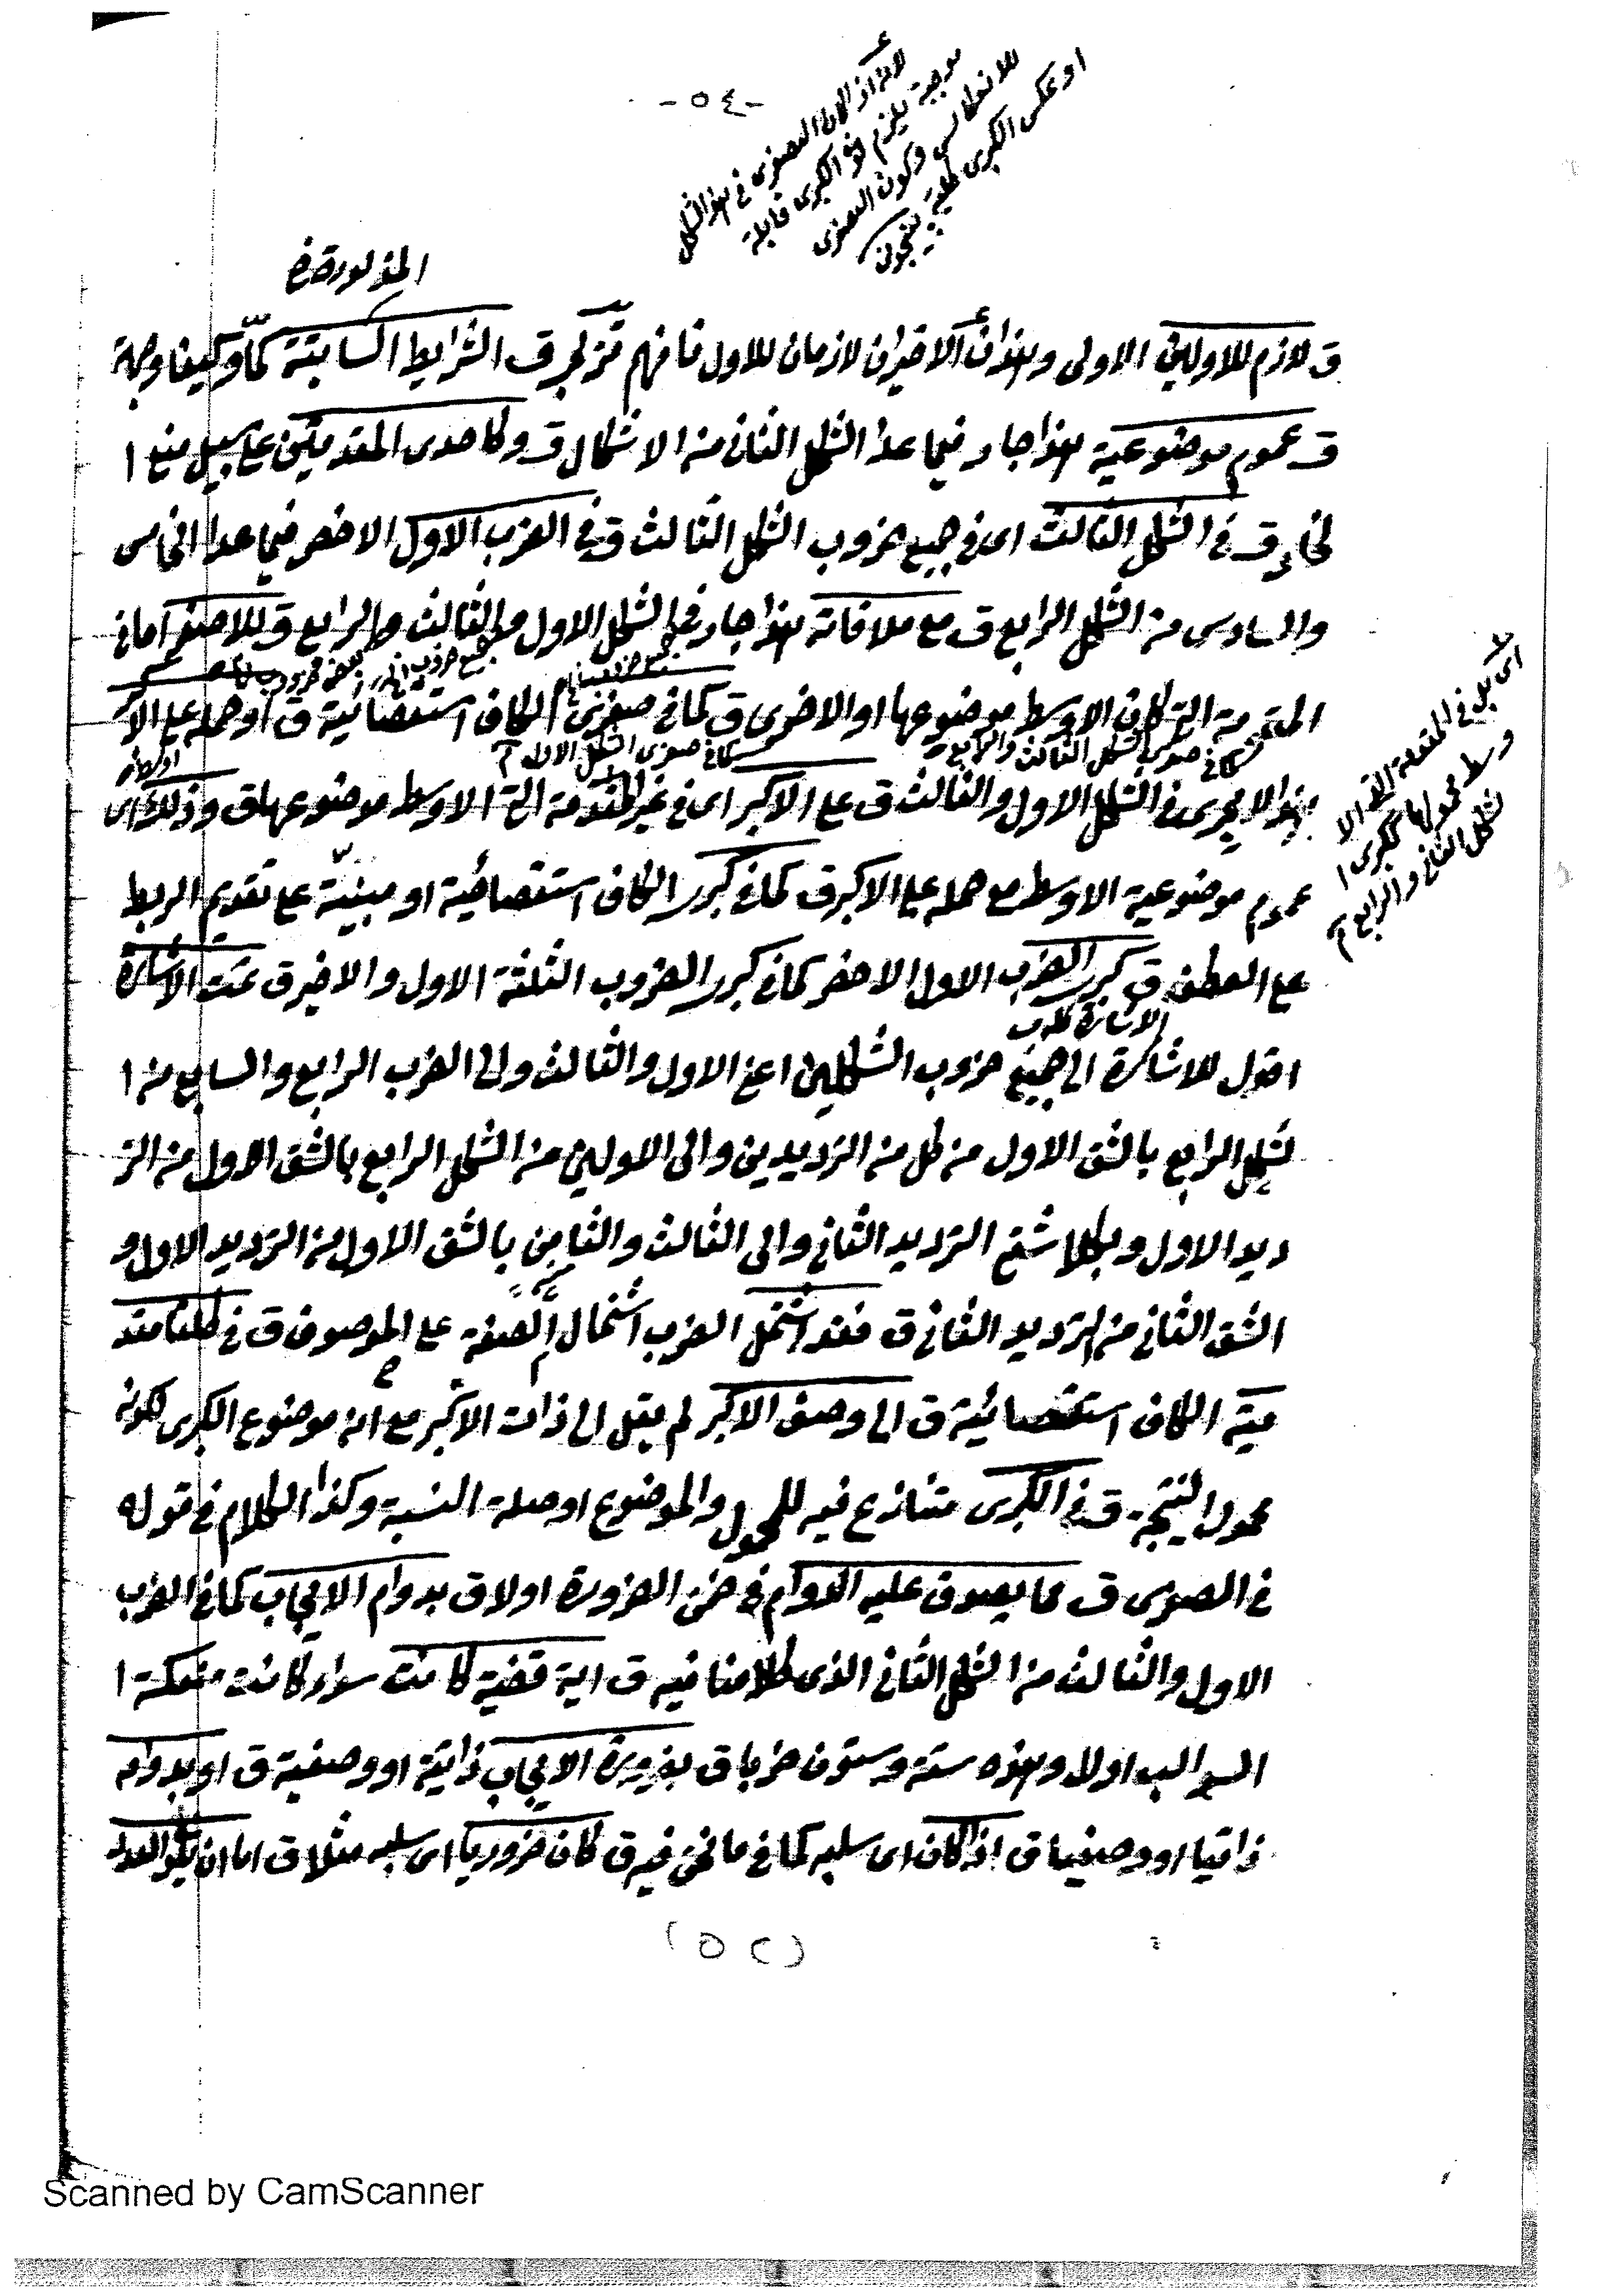 -٥٤-
لانه اذا كان الصغرى في هذا الشكل
موجبة يلزم كون الكبرى قابلة
للانعكاس وكون الصغرى
او عكس الكبرى كلية
ق لازم للاولين الاولى وهذان الاخيران لازمان للاول فافهم ق الشرايط السابقة كما وكيفا وجهة
ق عموم موضوعية هذا جار فيما عدا الشكل الثانى من الاشكال ق وكاحدى المقدمتين على سبيل منع ا
لخلو ق فى الشكل الثالث اى فى جميع ضروب الشكل الثالث ق فى الضرب الاول الاخصر فيما عدا الخامس
والسادس من الشكل الرابع ق مع ملاقاته هذا جار فى الشكل الاول والثالث والرابع ق للاصغر اما فى
المقدمة التى كان الاوسط موضوعها او الاخرى ق كما فى صغرى الكاف استقصائية ق او حمله على الا
كما فى صغرى الشكل الثالث والرابع
كما فى صغرى الشكل الاول
هذا لا يجرى فى الشكل الاول والثالث ق على الاكبر اى فى غير المقدمة التى الاوسط موضوعها ق وذلك اى
اى بل فى المقدمة التى الا
وسط محمولها ككبرى ا
لشكل الثانى والرابع
عموم موضوعية الاوسط مع حمله على الاكبر ق كما فى كبرى الكاف استقصائية او مبنية على تقديم الربط
على العطف ق كبرى الضرب الاول الاخصر كما فى كبرى الضروب الثلثة الاول والاخير ق تمت الاشارة
اقول للاشارة الى جميع ضروب الشكلين اعنى الاول والثالث والى الضرب الرابع والسابع من ا
لشكل الرابع بالشق الاول من كل من الترديدين والى الاولين من الشكل الرابع بالشق الاول من التر
ديد الاول وبكلا شقى الترديد الثانى والى الثالث والثامن بالشق الاول من الترديد الاول و
الشق الثانى من الترديد الثانى ق فقد اشتمل الضرب اشتمال الصفة على الموصوف ق فى كلتا مقد
ميه الكاف استقصائية ق الى وصف الاكبر لم يقل الى ذات الاكبر مع انه موضوع الكبرى لكونه
محمول النتيجة ق فى الكبرى متنازع فيه للمحمول والموضوع او صلة النسبة وكذا الكلام فى قوله
فى الصغرى ق مما يصدق عليه الدوام فى ضمن الضرورة اولا ق بدوام الايجاب كما فى الضرب
الاول والثالث من الشكل الثانى الذى كلامنا فيه ق اية قضية كانت سواء كانت منعكسة ا
لسوالب اولا وهذه ستة وستون ضربا ق بضرورة الايجاب ذاتية او وصفية ق او بدوامه
ذاتيا او وصفيا ق اذا كان اى سلبه كما فى ما نحن فيه ق كان ضروريا اى سلبه مثلا ق اما ان يكون
(٥٢)
Scanned by CamScanner